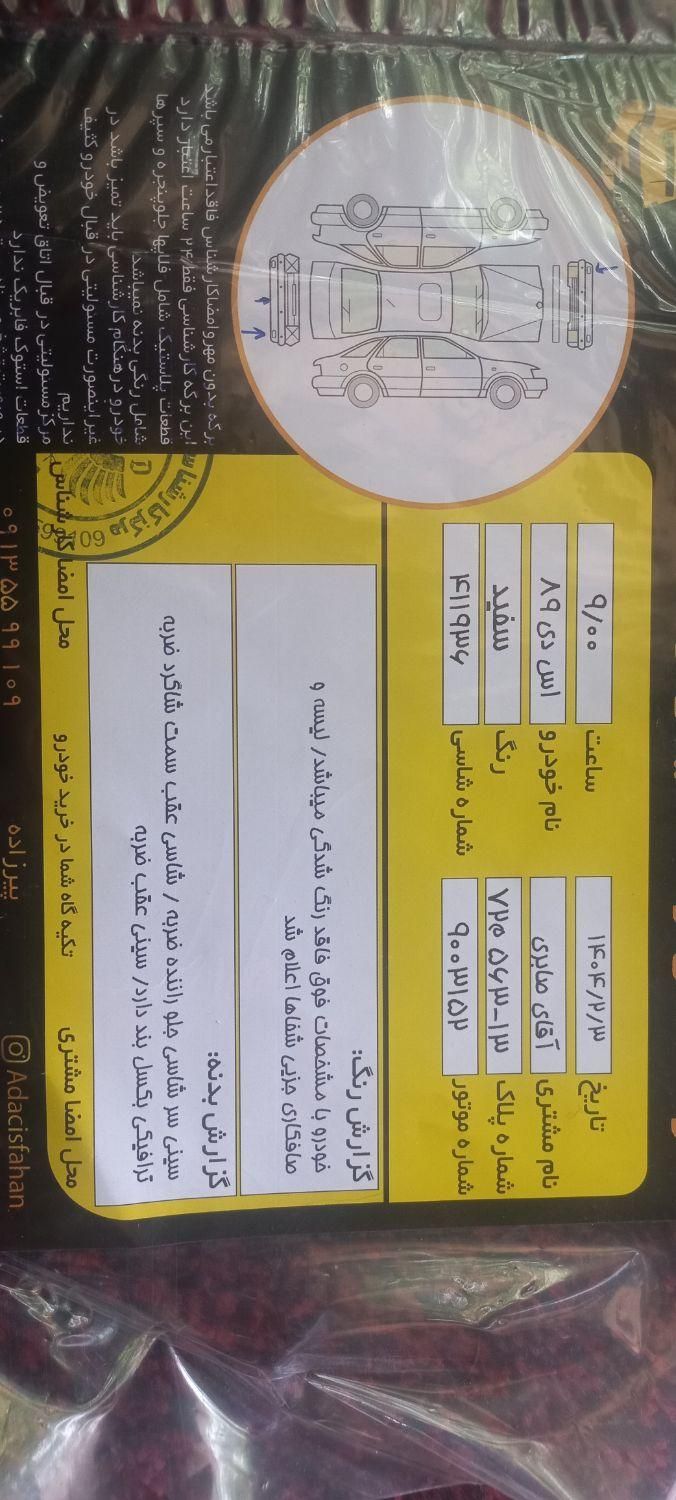 تاریخ ۱۴۰۴/۲/۳ ساعت ۹/۰۰
نام مشتری آقای صابری نام خودرو اس دی ۸۹
شماره پلاک ۱۳-۵۶۳ م ۷۲ رنگ سفید
شماره موتور ۹۰۰۳۱۵۲ شماره شاسی ۴۱۱۹۳۶
گزارش رنگ:
خودرو با مشخصات فوق فاقد رنگ شدگی میباشد/ لیسه و
صافکاری جزیی شفاها اعلام شد
گزارش بدنه:
سینی سر شاسی جلو راننده ضربه / شاسی عقب سمت شاگرد ضربه
ترافیکی بکسل بند دارد/ سینی عقب ضربه
برگه بدون مهر و امضا کارشناس فاقد اعتبار می باشد
این برگه کارشناسی فقط ۲۴ ساعت اعتبار دارد
قطعات پلاستیک شامل قابها جلوپنجره و سپرها
شامل رنگی بدنه نمیباشد
خودرو در هنگام کارشناسی باید تمیز باشد در
غیر اینصورت مسئولیتی در قبال خودرو کثیف
نداریم
مرکز مسئولیتی در قبال اتاق تعویض و
قطعات استوک فابریک ندارد
مرکز کارشناسی
محل امضا مشتری تکیه گاه شما در خرید خودرو محل امضا کارشناس
Adacisfahan. پیرزاده ۰۹۱۳ ۵۵ ۹۹ ۱۰۹